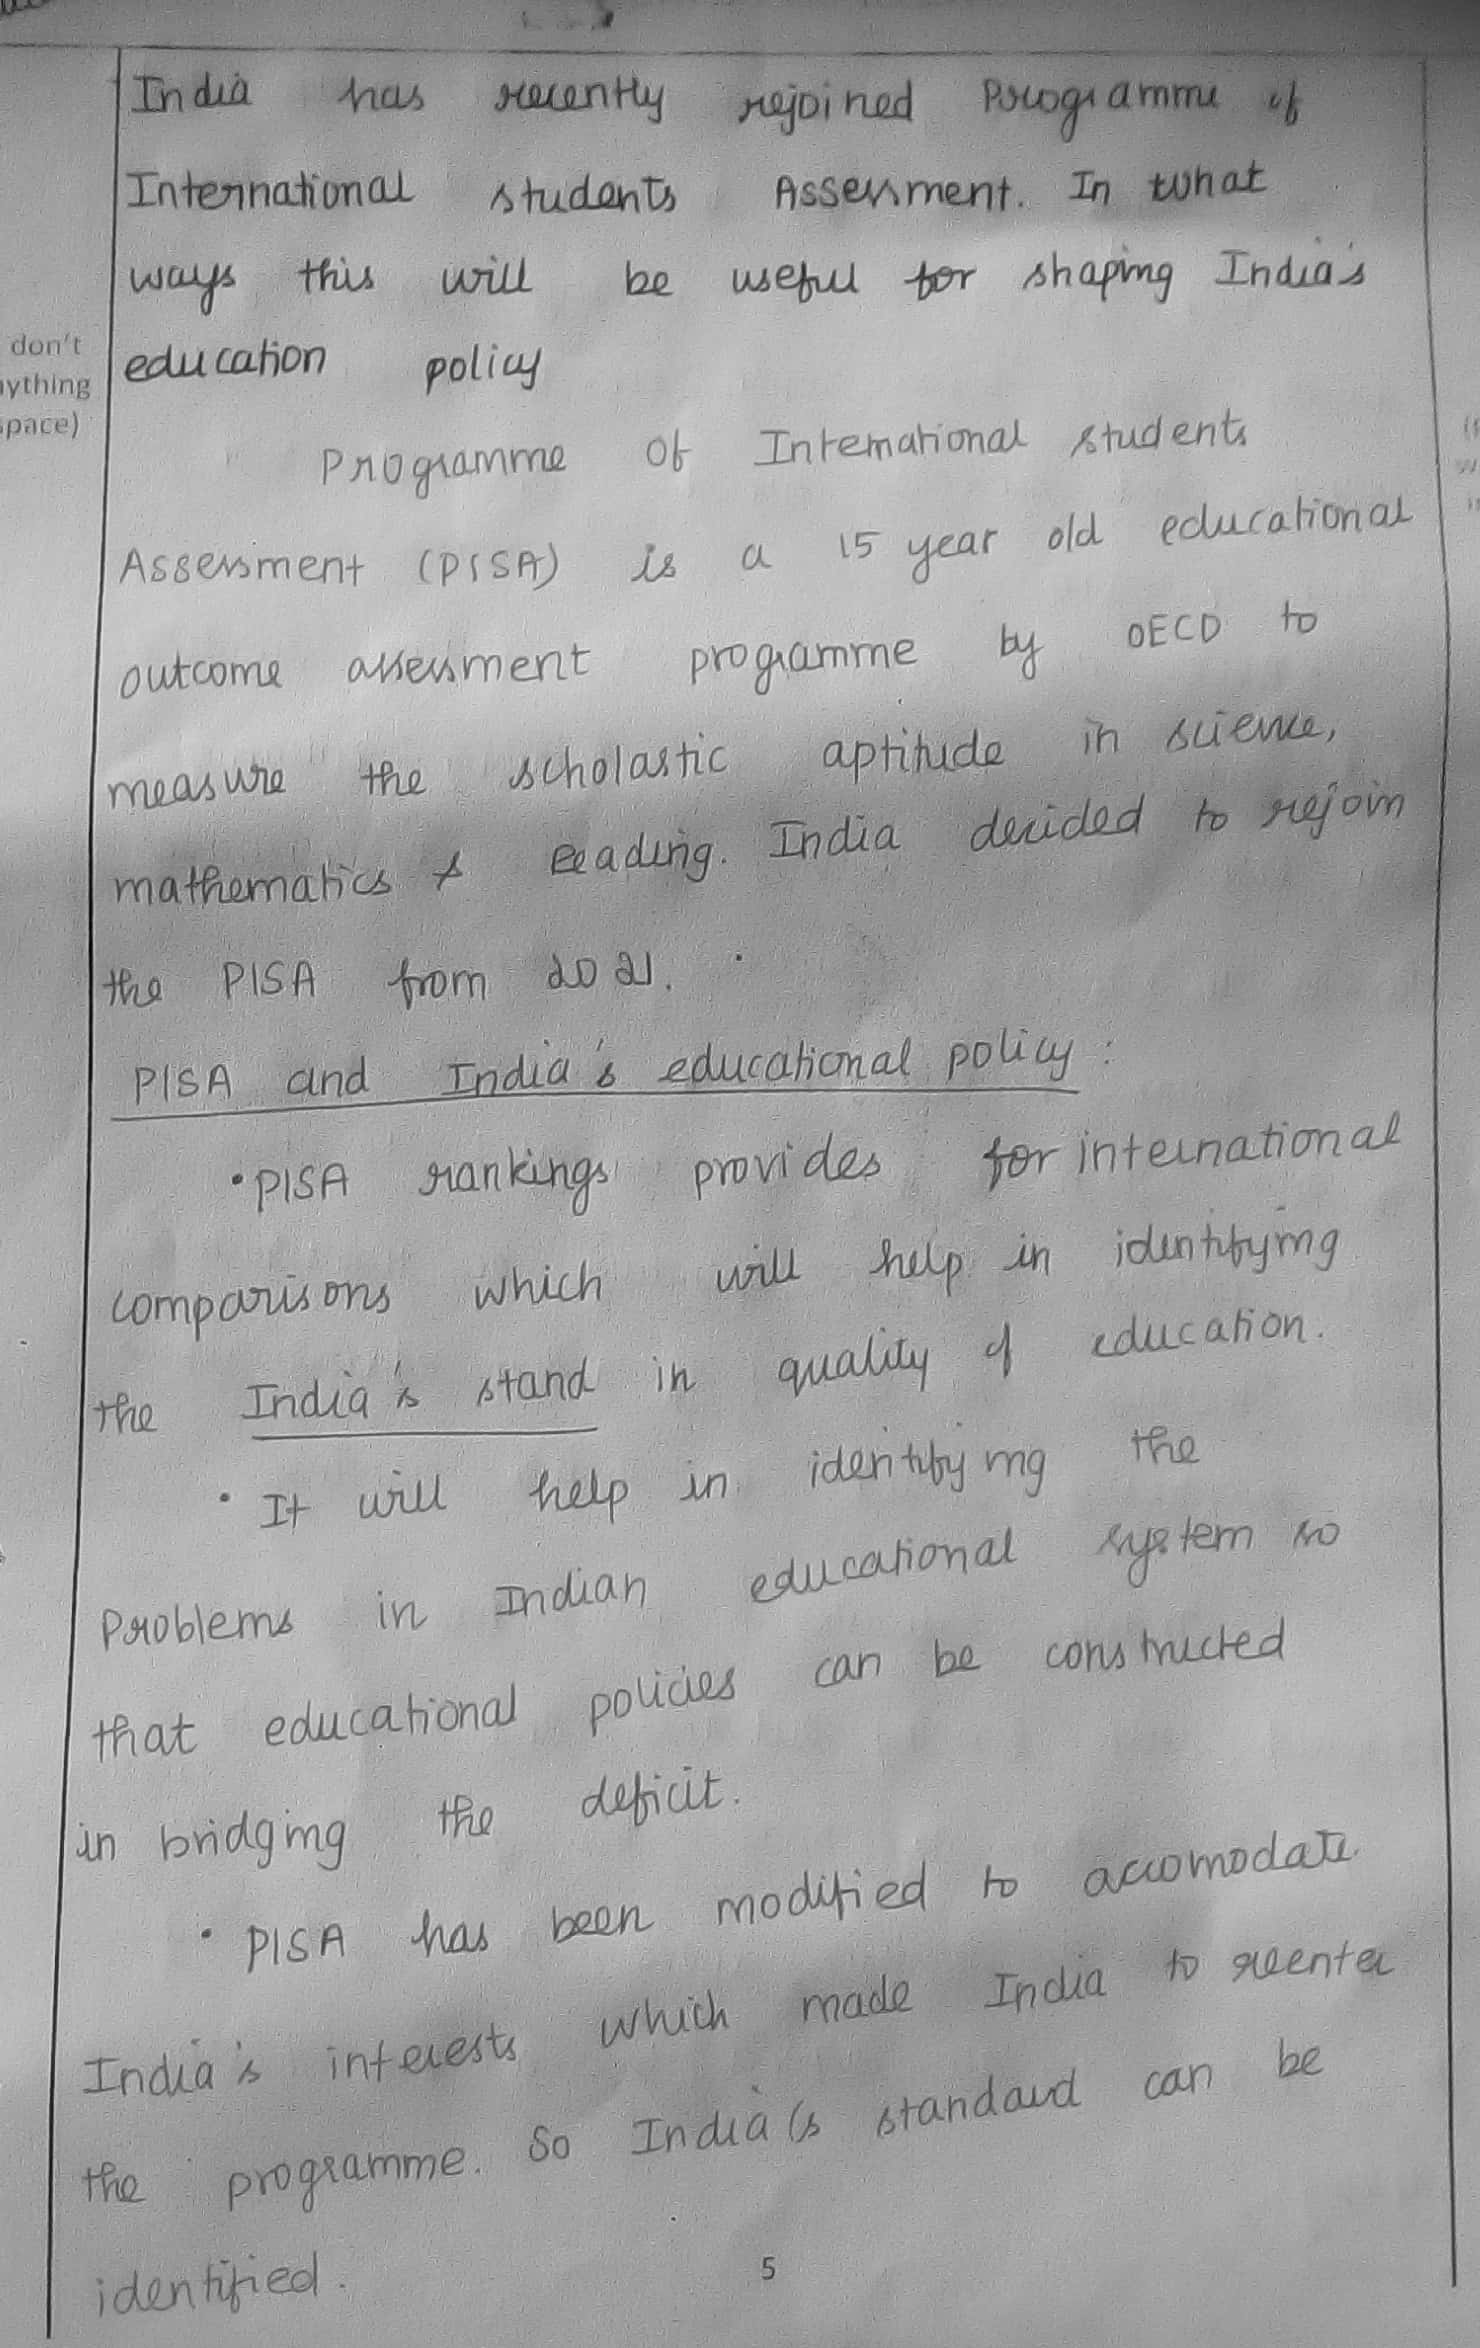 India has recently rejoined Programme of
International students Assessment. In what
ways this will be useful for shaping India's
education policy
don't
ything
space)
Programme of International students
Assessment (PISA) is a 15 year old educational
outcome assessment programme by OECD to
measure the scholastic aptitude in science,
mathematics & Reading. India decided to rejoin
the PISA from 2021.
PISA and India's educational policy :
• PISA rankings provides for international
comparisons which will help in identifying
the India's stand in quality of education.
• It will help in identifying the
Problems in Indian educational system so
that educational policies can be constructed
in bridging the deficit.
• PISA has been modified to accomodate
India's interests which made India to reenter
the programme. So India's standard can be
identified.
5